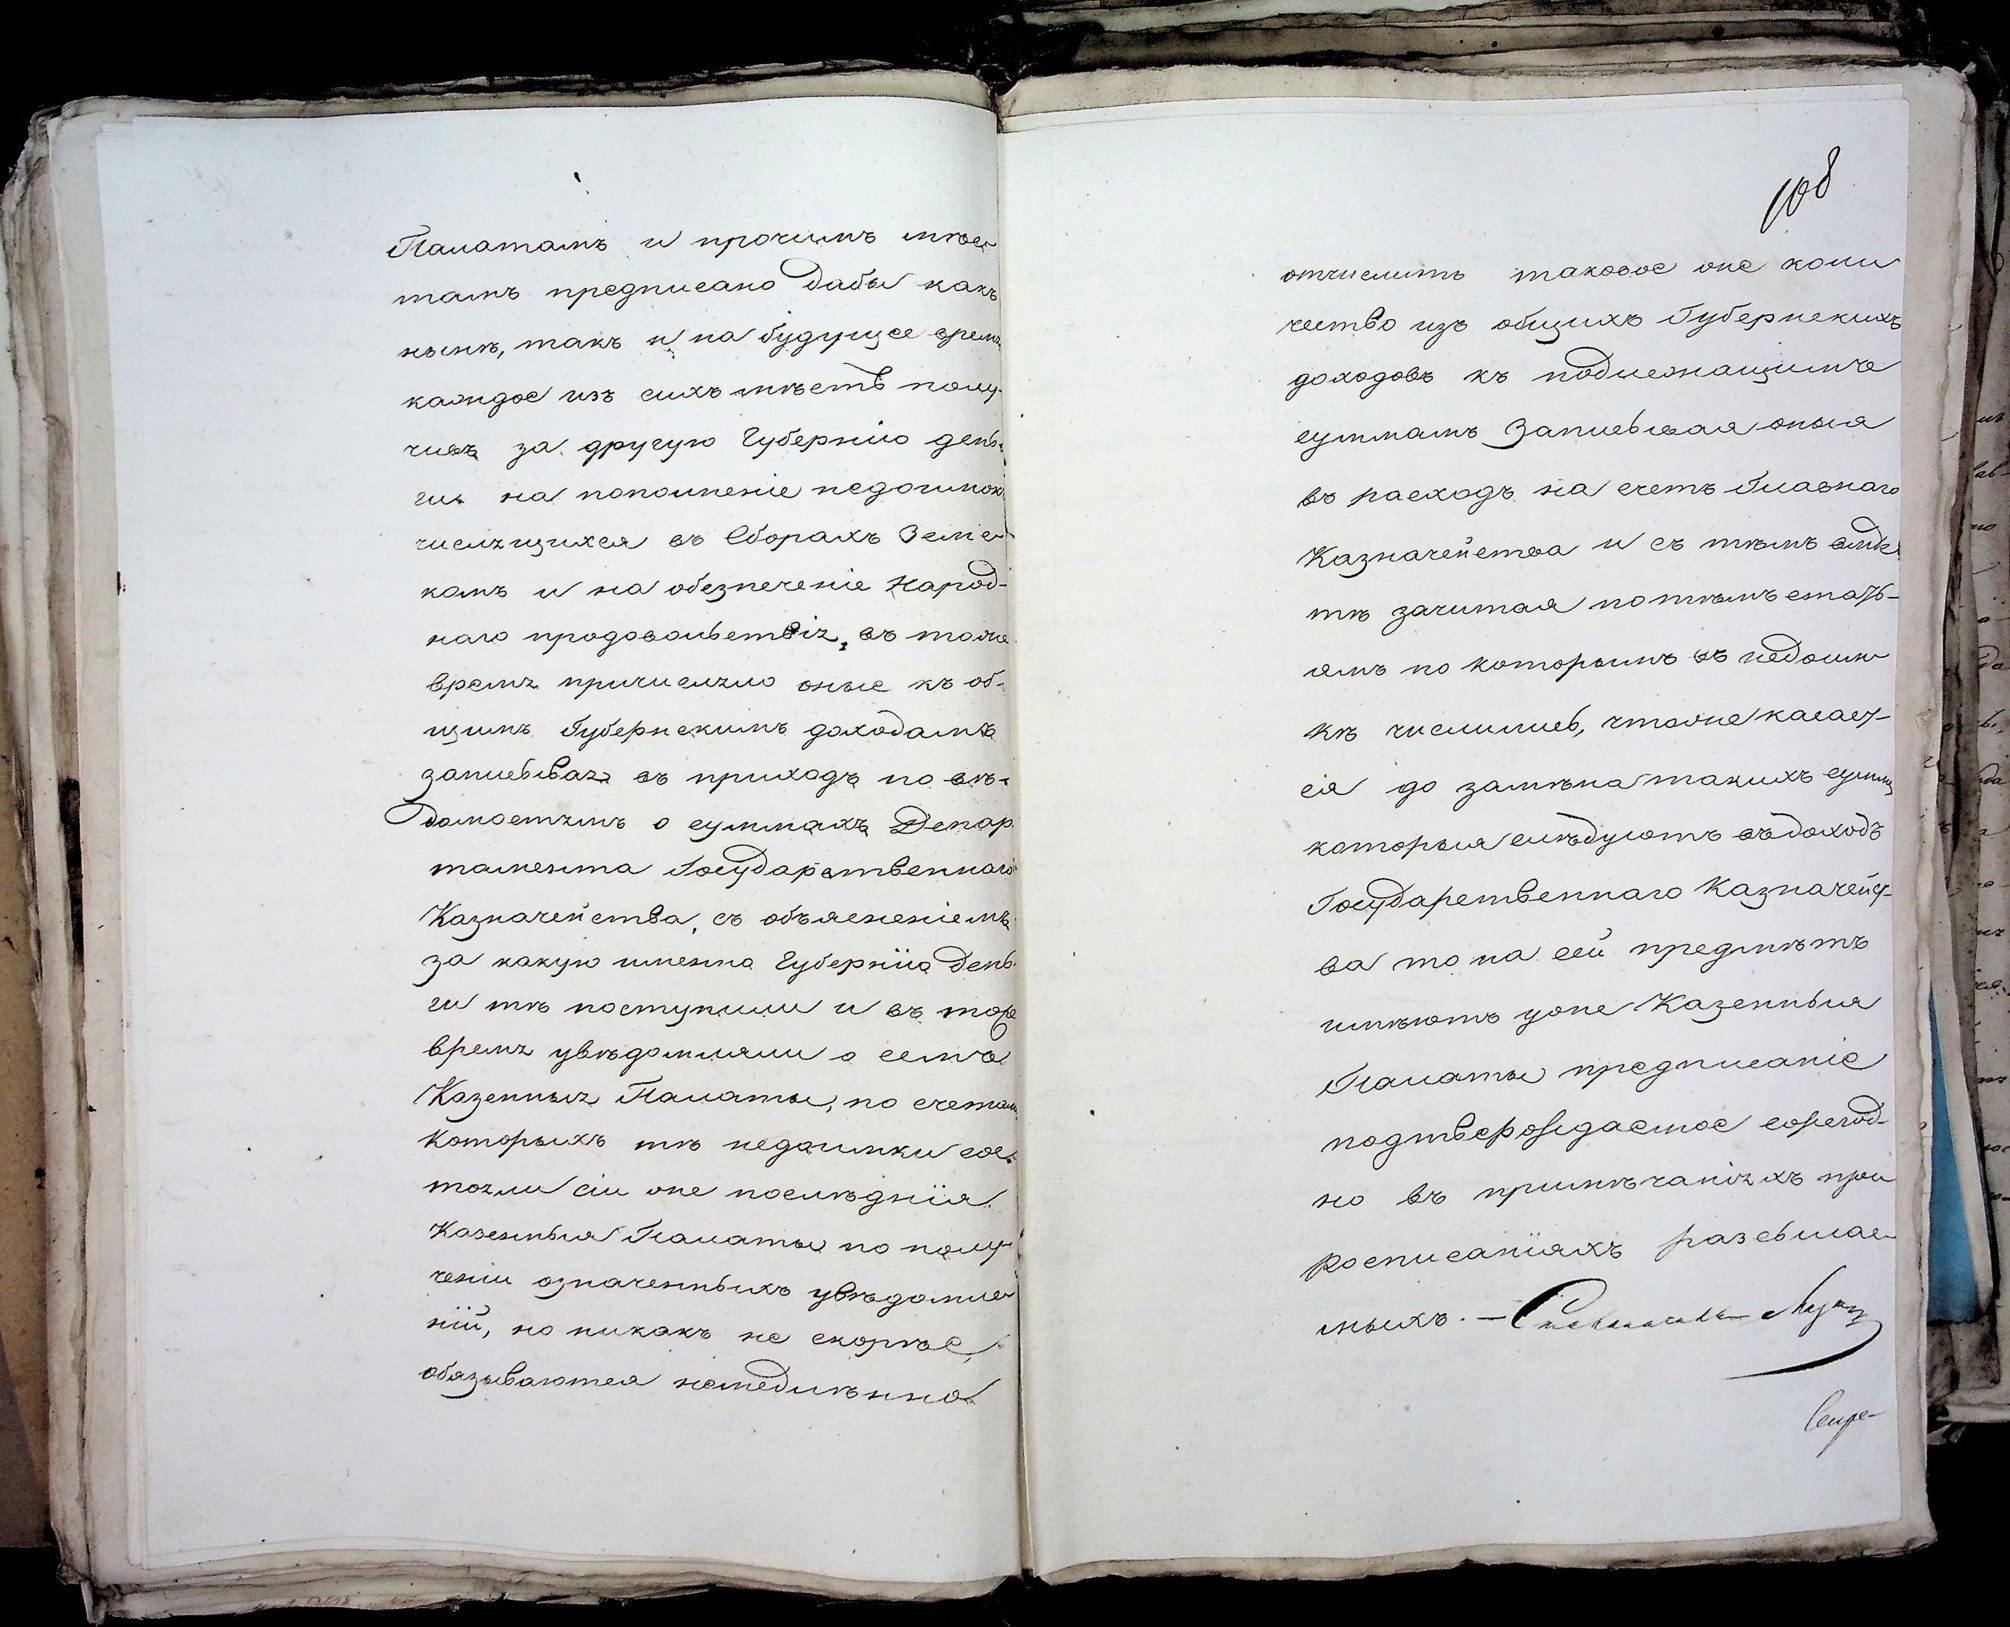 Палатамъ и прочимъ мѣс
тамъ предписано дабы какъ
нынѣ, такъ и на будущее время
каждое изъ сихъ мѣстъ полу-
чивъ за другую Губернію день-
ги на пополненіе недоимокъ
числящихся въ Сборахъ Земс
комъ и на обезпеченіе Народ-
наго продовольствія, въ тоже
время причисляло оные къ об-
щимъ Губернскимъ доходамъ
записывая въ приходъ по вѣ-
домостямъ о суммахъ Депар
тамента Государственнаго
Казначейства, съ объясненіемъ
за какую именно Губернію день-
ги тѣ поступили и въ тоже
время увѣдомляли о семъ
Казенныя Палаты, по счетамъ
которыхъ тѣ недоимки сос-
тояли сіи оне послѣднія
Казенныя Палаты по полу-
ченіи означенныхъ увѣдомле
ній, но никакъ не скорѣе,
обязываются немедлѣнно
108
отчислить таковое оне коли
чество изъ общихъ Губернскихъ
доходовъ къ подлежащимъ
суммамъ записывая оныя
въ расходъ на счетъ Главнаго
Казначейства и съ тѣмъ вмѣс
тѣ зачитая по тѣмъ стать-
ямъ по которымъ въ недоим
кѣ числились, чтоже касает-
ся до замѣна такихъ суммъ
которыя слѣдуютъ въ доходъ
Государственнаго Казначейст-
ва то на сей предмѣтъ
имѣютъ уоне Казенныя
Палаты предписаніе
подтверождаемое ежегод-
но въ примѣчаніяхъ при
росписаніяхъ разсылае
мыхъ. —